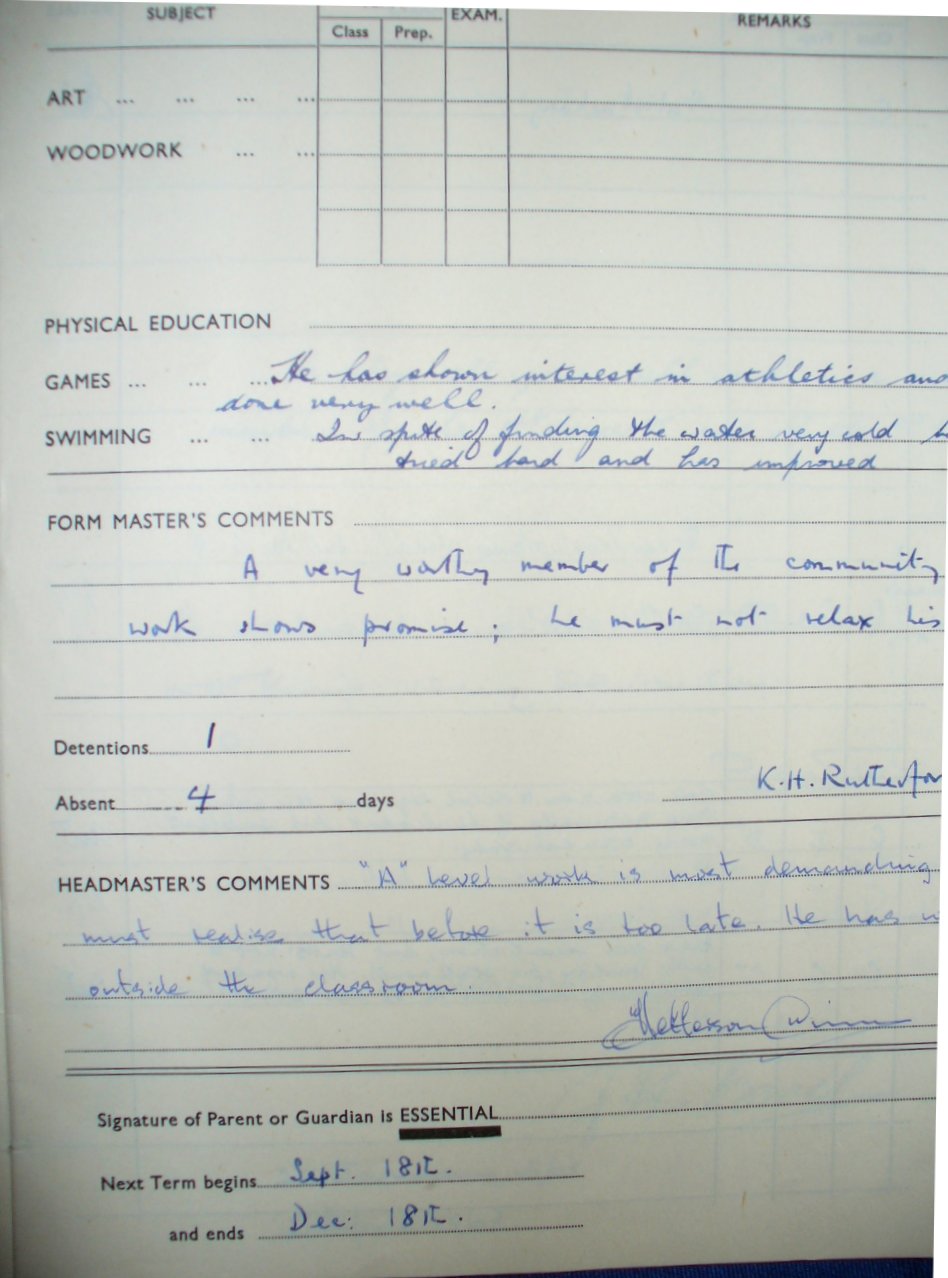 SUBJECT EXAM. REMARKS
Class Prep.
ART ... ... ... ...
WOODWORK ... ...
PHYSICAL EDUCATION
GAMES ... ... ... He has shown interest in athletics and
done very well.
SWIMMING ... ... In spite of finding the water very cold
tried hard and has improved
FORM MASTER'S COMMENTS
A very worthy member of the community
work shows promise; he must not relax his
Detentions 1
Absent 4 days
K.H. Rutherfor
HEADMASTER'S COMMENTS "A" level work is most demanding
must realise that before it is too late. He has
outside the classroom.
Signature of Parent or Guardian is ESSENTIAL
Next Term begins Sept. 18th.
and ends Dec: 18th.